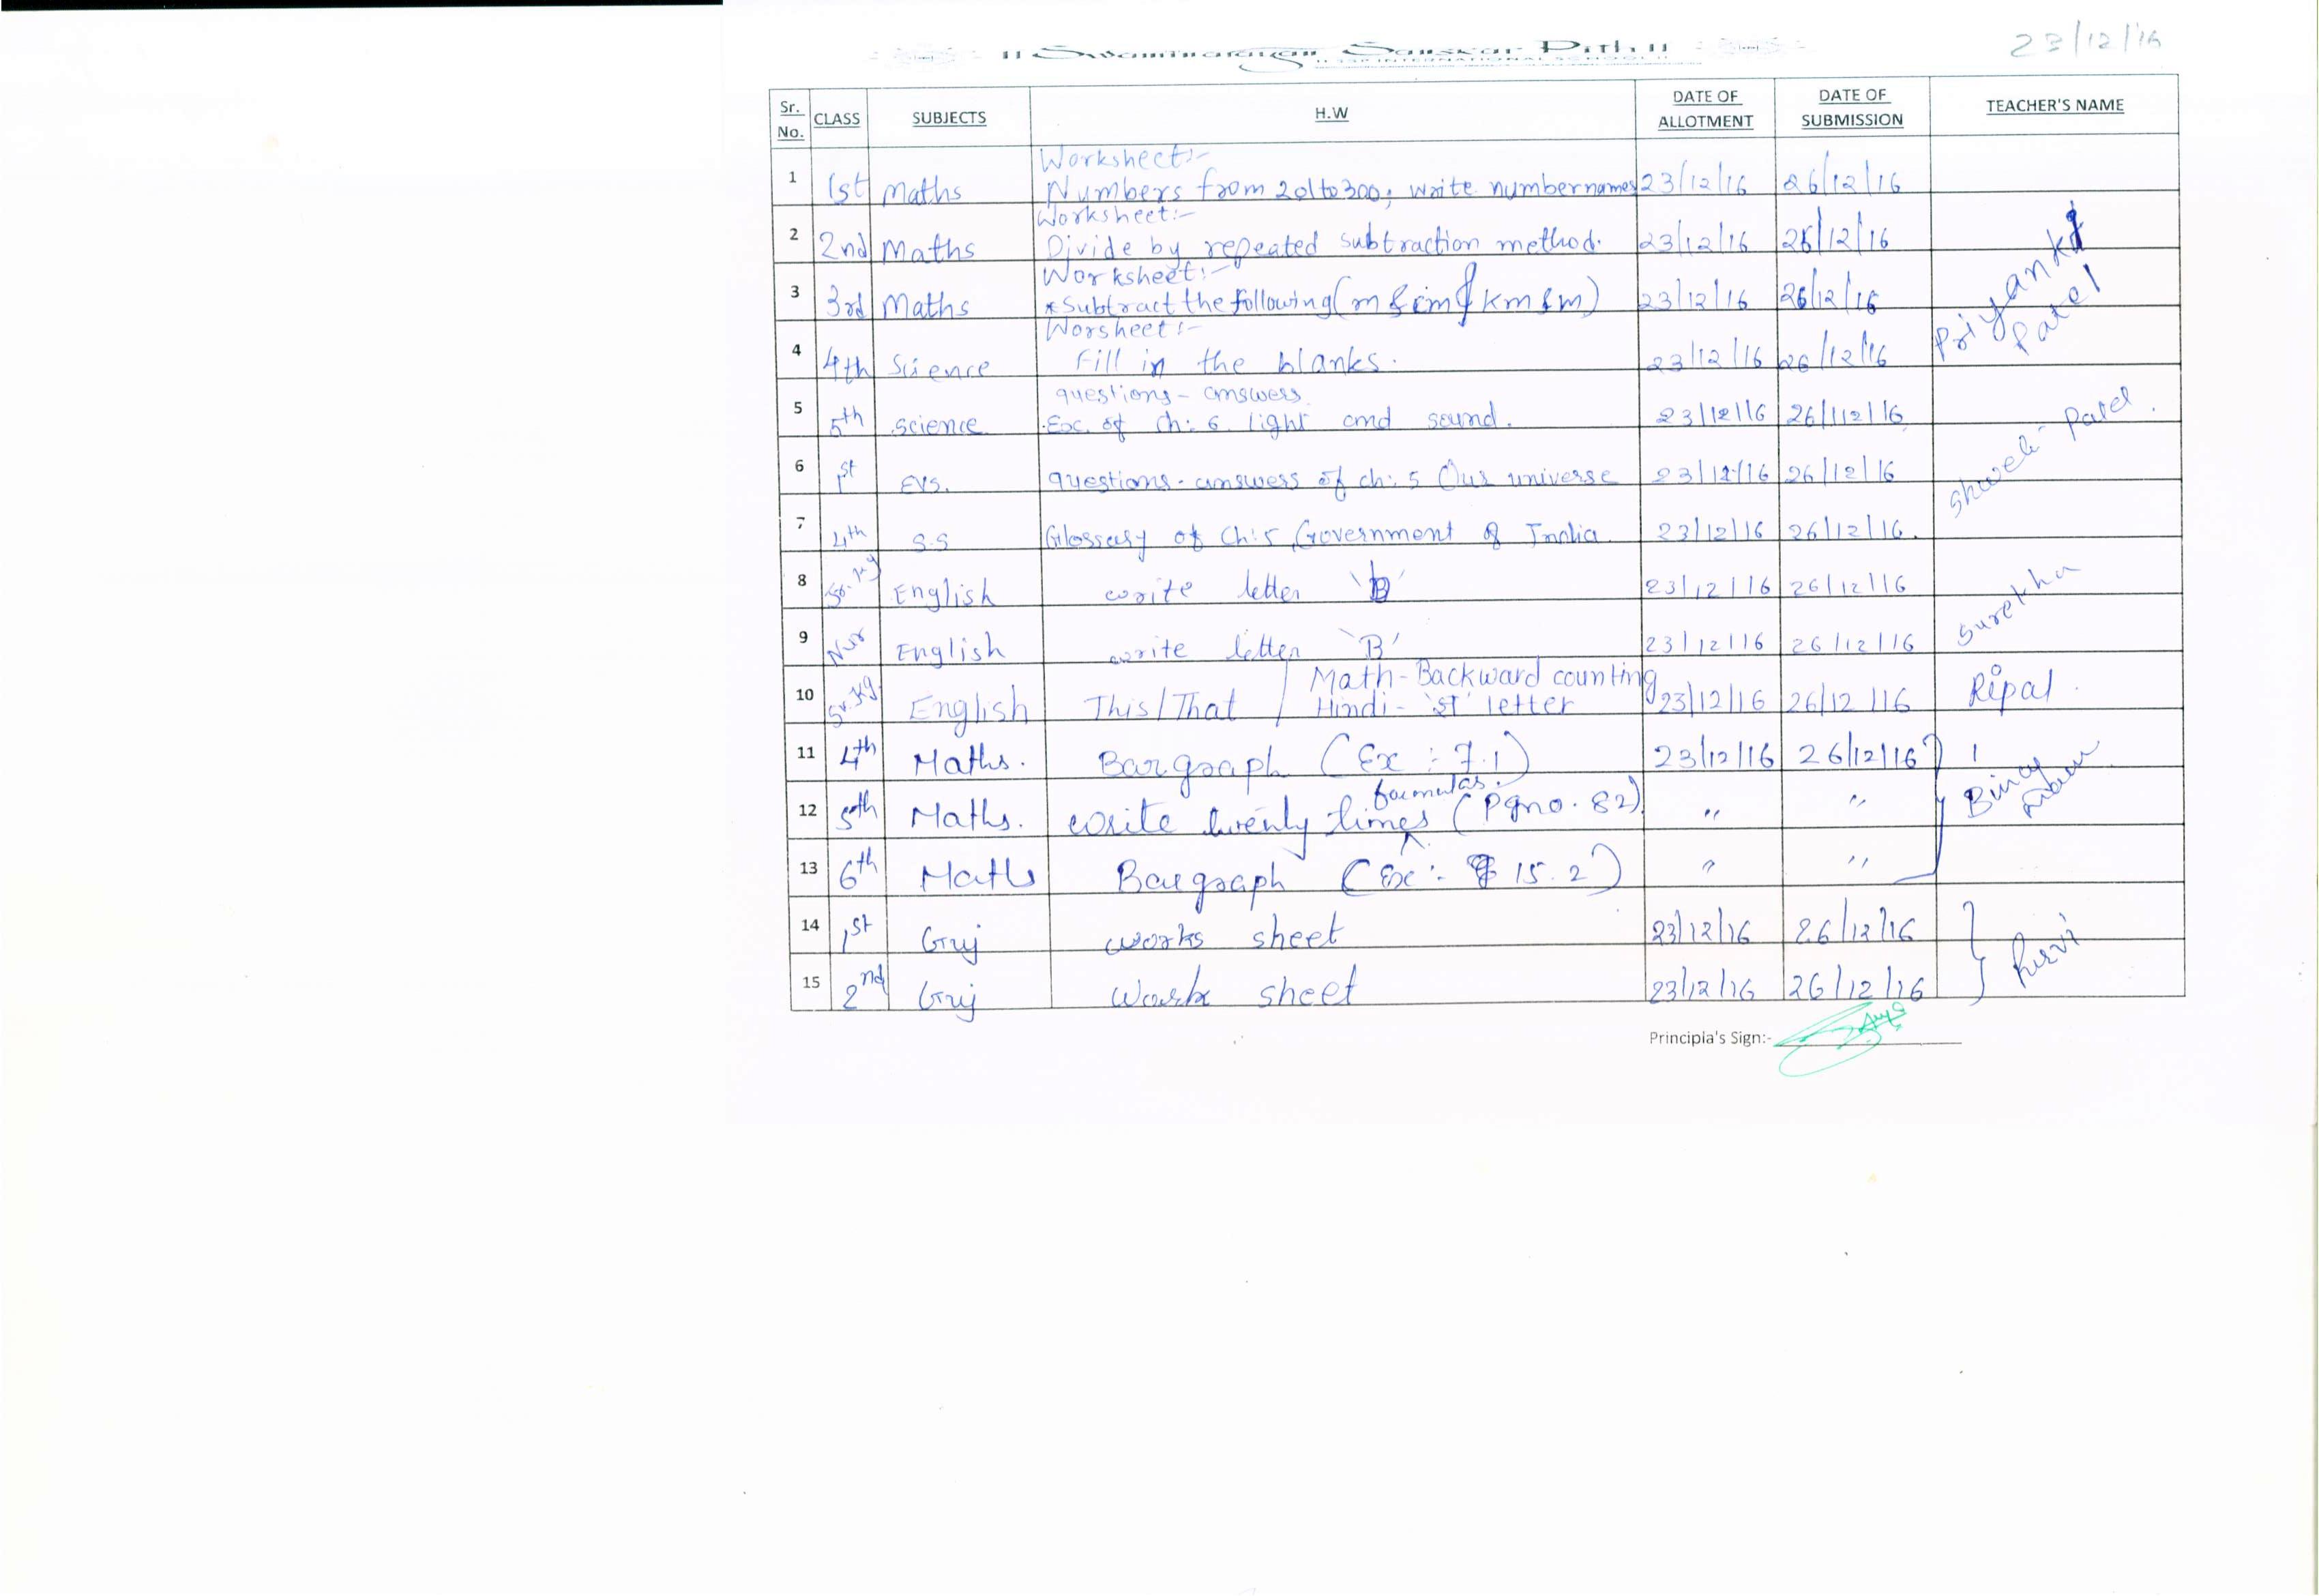 23/12/16
II Swaminarayan Sanskar Pith II
II SSP INTERNATIONAL SCHOOL II
Sr. No. CLASS SUBJECTS H.W DATE OF ALLOTMENT DATE OF SUBMISSION TEACHER'S NAME
1 1st Maths Worksheet:- Numbers from 201 to 300; write number names 23/12/16 26/12/16
2 2nd Maths Worksheet:- Divide by repeated subtraction method. 23/12/16 26/12/16
3 3rd Maths Worksheet:- *Subtract the following (m & cm & km & m) 23/12/16 26/12/16
Priyanka Patel
4 4th Science Worsheet:- Fill in the blanks. 23/12/16 26/12/16
5 5th Science questions - answers Exc. of Ch: 6 light and sound. 23/12/16 26/12/16
6 1st EVS. questions - answers of ch: 5 Our universe 23/12/16 26/12/16
Patel.
7 4th S.S Glossary of Ch: 5 Government of India. 23/12/16 26/12/16.
8 English write letter 23/12/16 26/12/16
9 Nur English write letter 'B' 23/12/16 26/12/16
Surekha
10 Sr.Kg English This/That / Math - Backward counting Hindi - letter 23/12/16 26/12/16 Ripal.
11 4th Maths. Bargraph (Ex : 7.1) 23/12/16 26/12/16
12 5th Maths. write twenty times formulas. (Pgno. 82) " "
13 6th Maths Bargraph (Ex :- 15.2) " "
14 1st Guj works sheet 23/12/16 26/12/16
15 2nd Guj Work sheet 23/12/16 26/12/16
Purvi
Principla's Sign:-